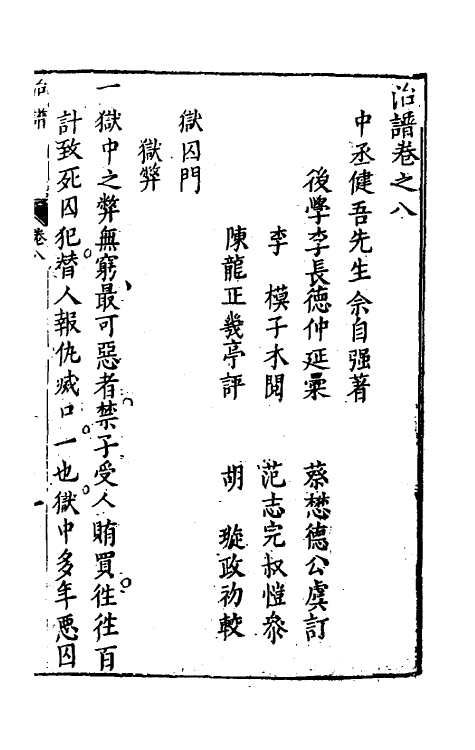 治譜卷之八
中丞健吾先生佘自强著
後學李長德仲延彙 蔡懋德公虞訂
李 模子木閱 范志完叔愷叅
陳龍正幾亭評 胡 璇政初較
獄囚門
獄弊
一獄中之弊無窮最可惡者禁子受人賄買往往百
計致死囚犯替人報仇滅口一也獄中多年惡囚
治譜 卷八 一